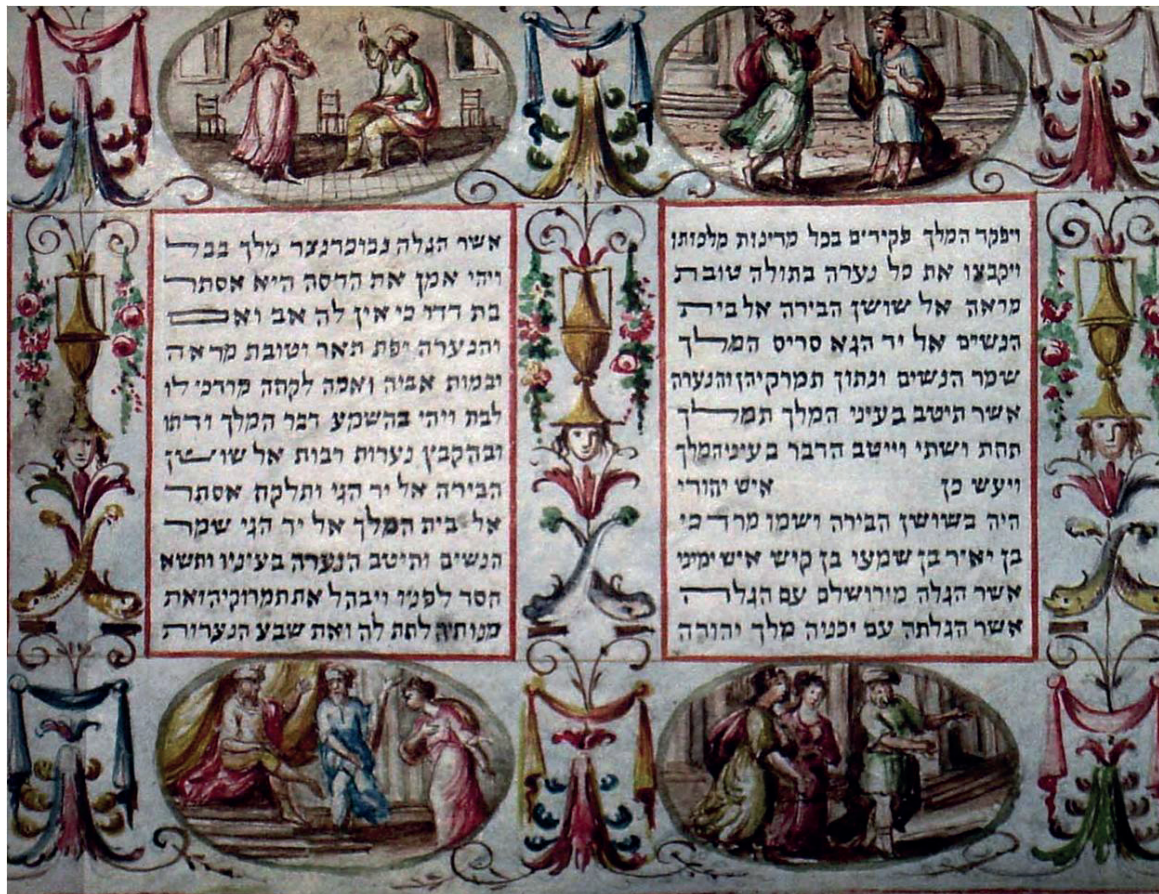 ויפקד המלך פקידים בכל מדינות מלכותו
ויקבצו את כל נערה בתולה טובת
מראה אל שושן הבירה אל בית
הנשים אל יד הגא סריס המלך
שמר הנשים ונתון תמרקיהן והנערה
אשר תיטב בעיני המלך תמלך
תחת ושתי וייטב הדבר בעיני המלך
ויעש כן איש יהודי
היה בשושן הבירה ושמו מרדכי
בן יאיר בן שמעי בן קיש איש ימיני
אשר הגלה מירושלם עם הגלה
אשר הגלתה עם יכניה מלך יהודה
אשר הגלה נבוכדנצר מלך בבל
ויהי אמן את הדסה היא אסתר
בת דדו כי אין לה אב ואם
והנערה יפת תאר וטובת מראה
ובמות אביה ואמה לקחה מרדכי לו
לבת ויהי בהשמע דבר המלך ודתו
ובהקבץ נערות רבות אל שושן
הבירה אל יד הגי ותלקח אסתר
אל בית המלך אל יד הגי שמר
הנשים ותיטב הנערה בעיניו ותשא
חסד לפניו ויבהל את תמרוקיה ואת
מנותיה לתת לה ואת שבע הנערות